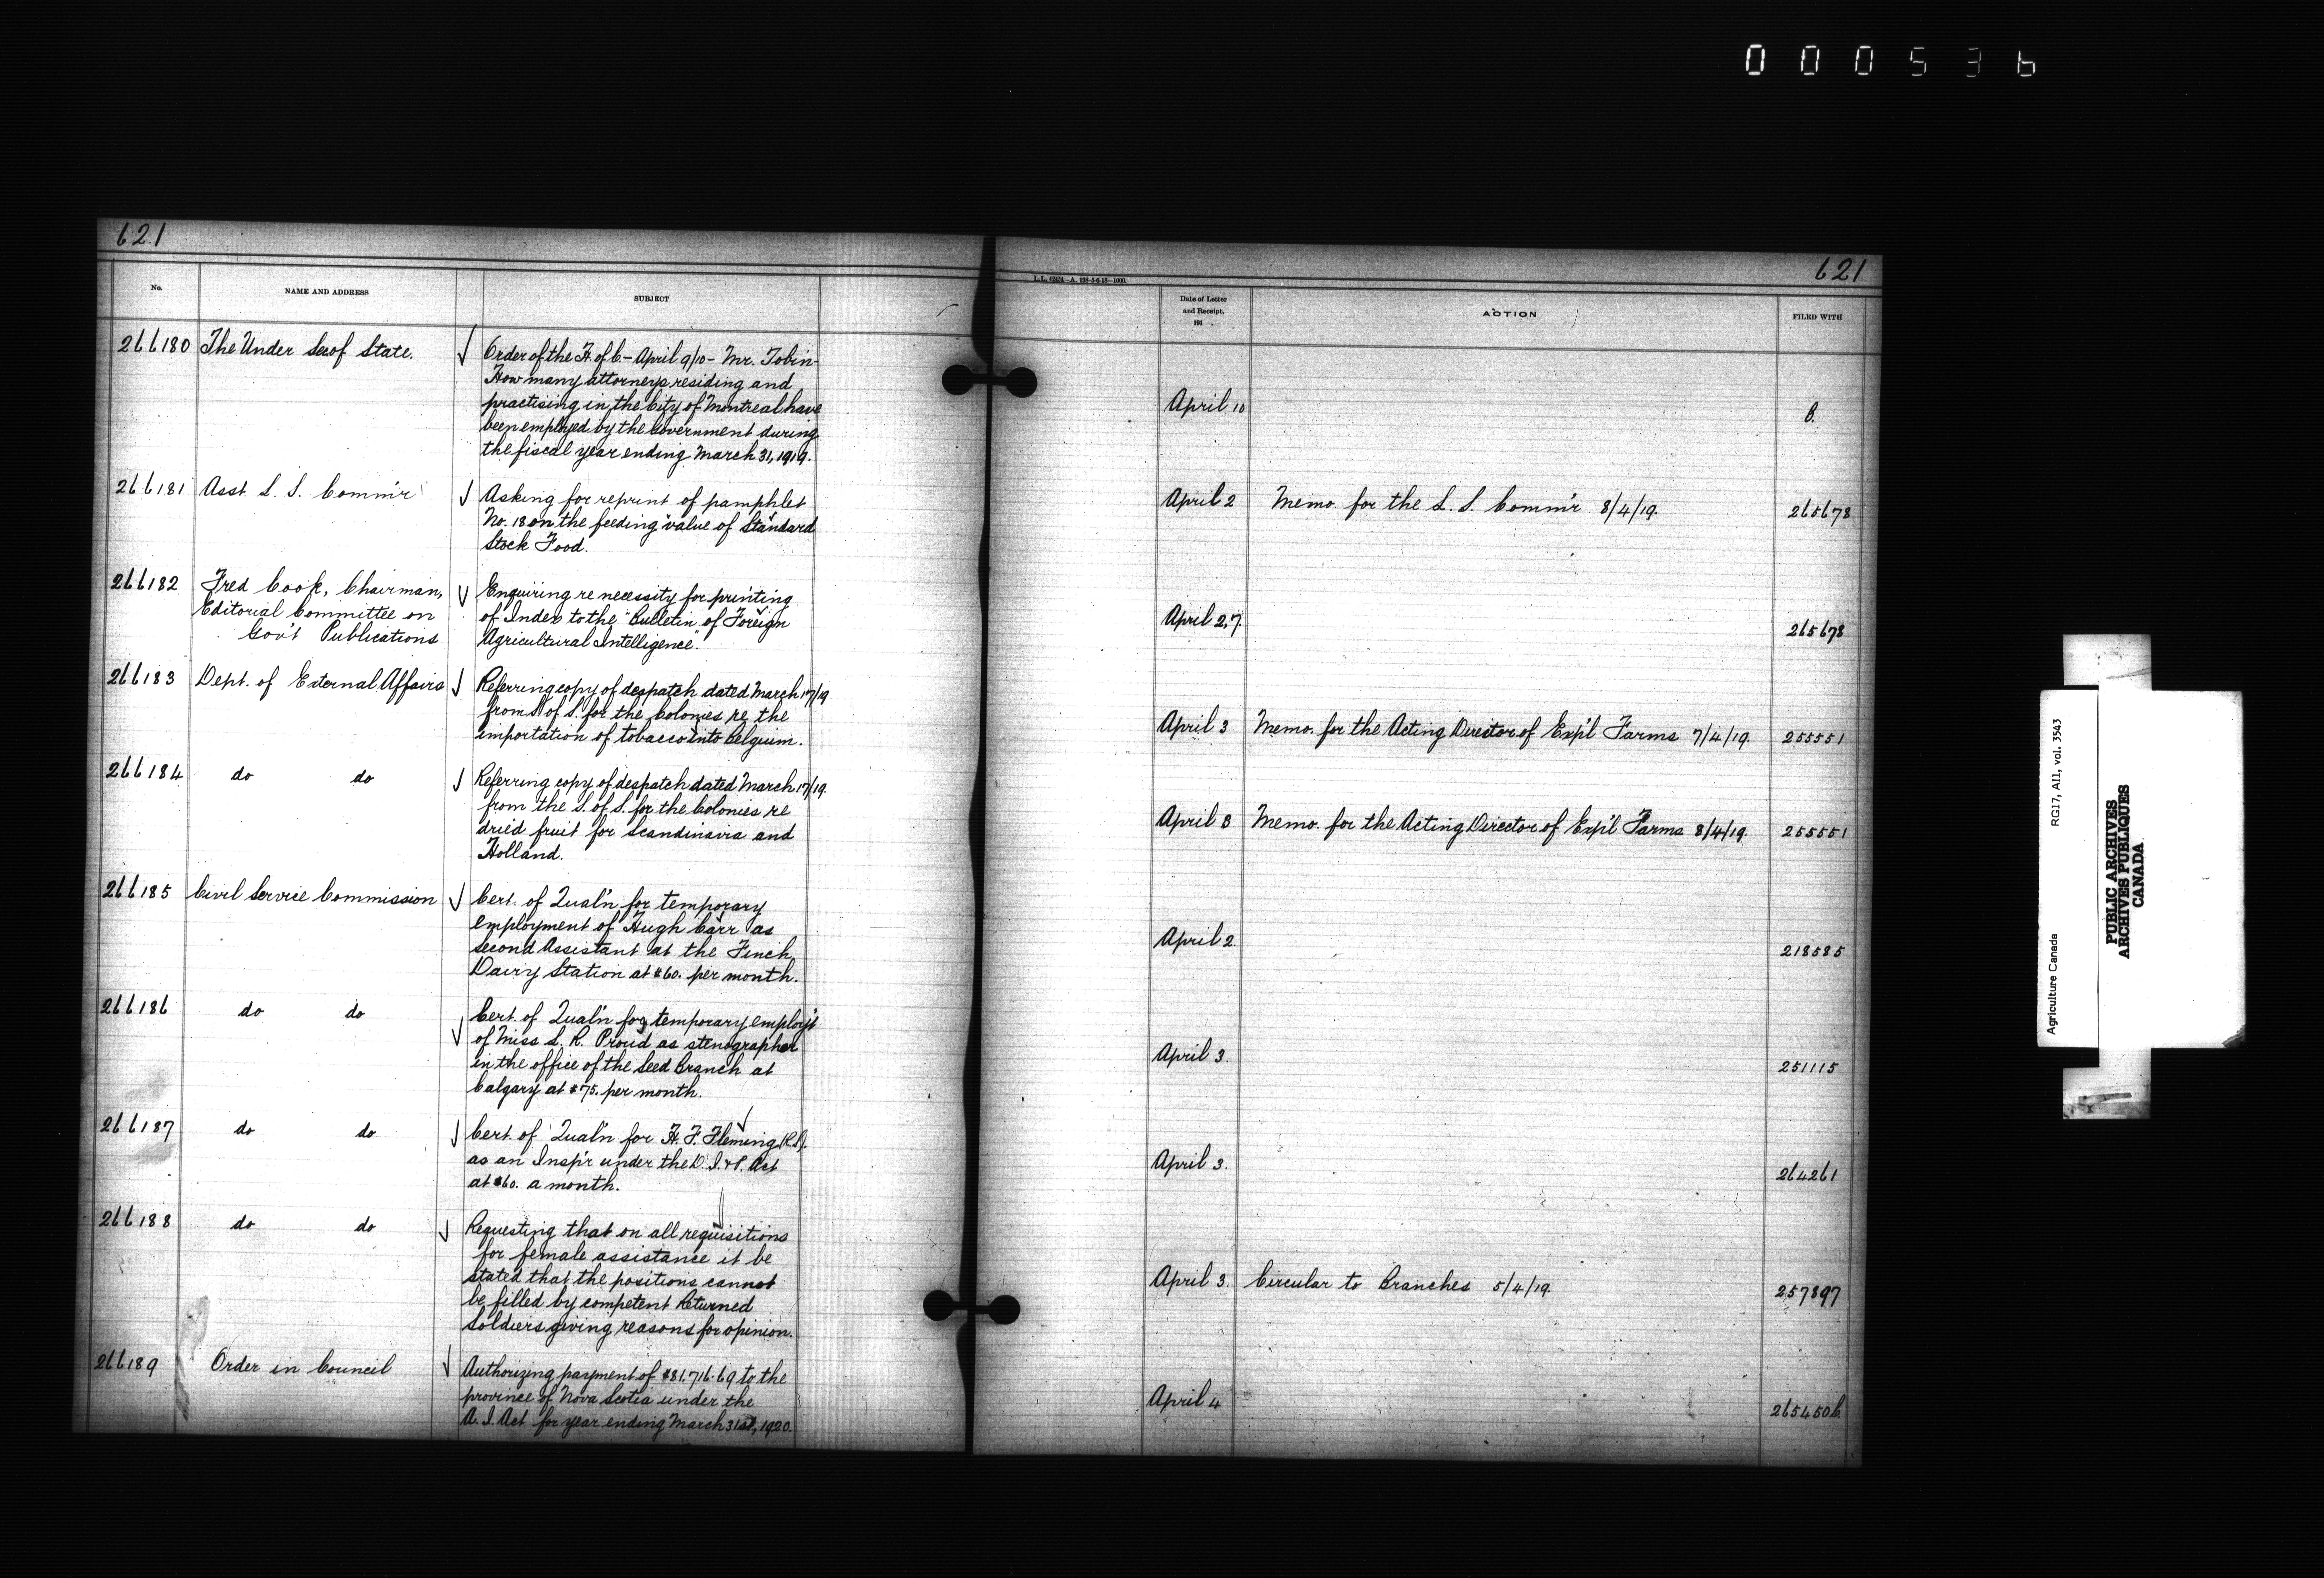 000536
621
621
No.
NAME AND ADDRESS
SUBJECT
Date of Letter
and Receipt,
191 .
ACTION
FILED WITH
266180 The Under Sec of State. Order of the H. of C. - April 9/10 - Mr. Tobin -
How many attorneys residing and
practising in the City of Montreal have
been employed by the Government during
the fiscal year ending March 31, 1919.
April 10
266181 Asst. L. S. Comm'r Asking for reprint of pamphlet
No. 18 on the feeding value of Standard
Stock Food.
April 2 Memo. for the L. S. Comm'r 8/4/19. 265678
266182 Fred Cook, Chairman,
Editorial Committee on
Gov't Publications
Enquiring re necessity for printing
of Index to the "Bulletin of Foreign
Agricultural Intelligence".
April 2, 7. 265678
266183 Dept. of External Affairs Referring copy of despatch dated March 17/19
from S of S. for the Colonies re the
importation of tobacco into Belguim.
April 3 Memo. for the Acting Director of Exp'l Farms 7/4/19. 255551
266184 do do Referring copy of despatch dated March 17/19
from the S. of S. for the Colonies re
dried fruit for Scandinavia and
Holland.
April 3 Memo. for the Acting Director of Exp'l Farms 8/4/19. 255551
266185 Civil Service Commission Cert. of Qual'n for temporary
employment of Hugh Carr as
second Assistant at the Finch
Dairy Station at $60. per month.
April 2. 218585
266186 do do Cert. of Qual'n for temporary employ't
of Miss L. R. Proud as stenographer
in the office of the Seed Branch at
Calgary at $75. per month.
April 3. 251115
266187 do do Cert. of Qual'n for H. F. Fleming
as an Insp'r under the D. I. & P. Act
at $60. a month.
April 3. 264261
266188 do do Requesting that on all requisitions
for female assistance it be
stated that the positions cannot
be filled by competent Returned
Soldiers giving reasons for opinion.
April 3. Circular to Branches 5/4/19. 257897
266189 Order in Council Authorizing payment of $81,716.69 to the
province of Nova Scotia under the
A. I. Act for year ending March 31st, 1920.
April 4 265450 C.
Agriculture Canada
RG17, AII, vol. 3543
PUBLIC ARCHIVES
ARCHIVES PUBLIQUES
CANADA